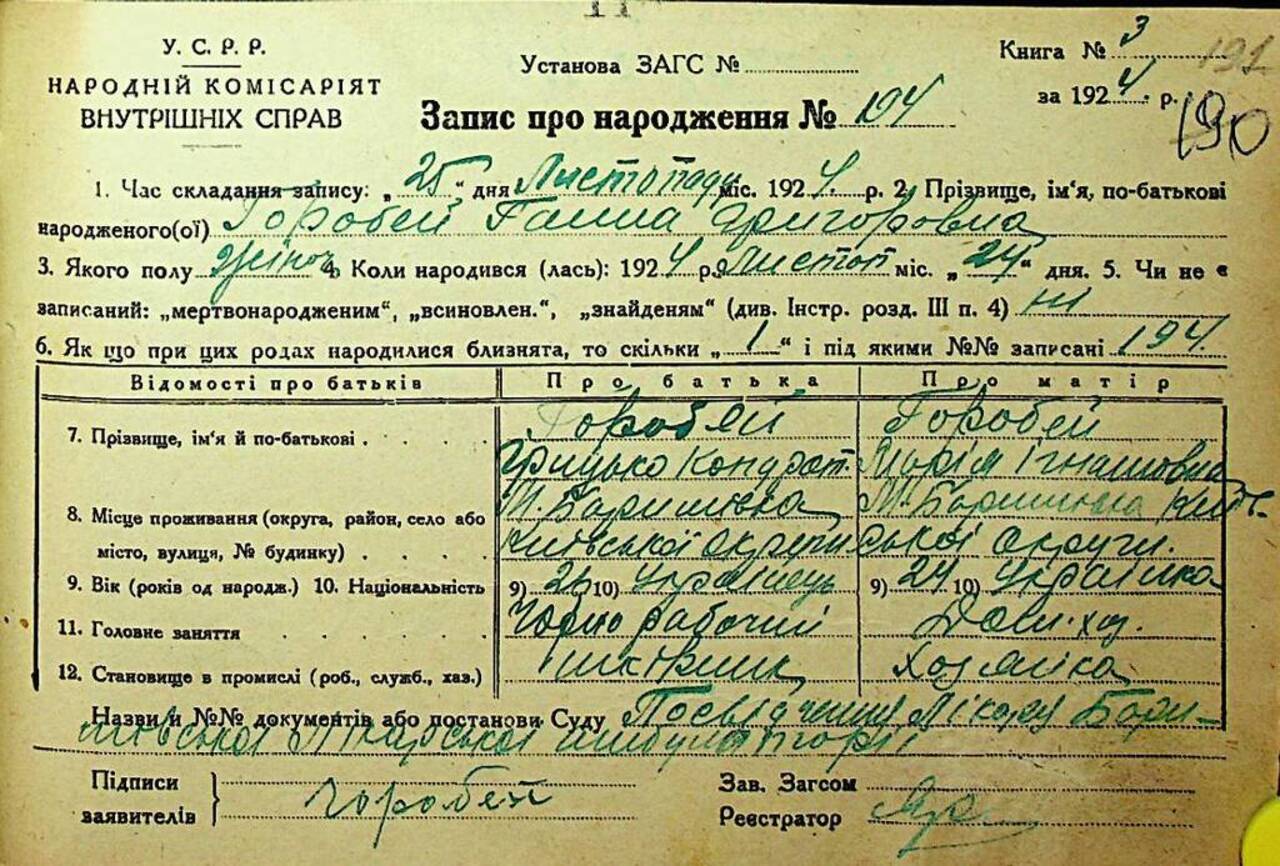 У. С. Р. Р.
НАРОДНІЙ КОМІСАРІЯТ
ВНУТРІШНІХ СПРАВ
Установа ЗАГС №
Книга № 3
191
за 1924 р.
190
Запис про народження № 194
1. Час складання запису: „25“ дня Листопаду міс. 1924 р. 2. Прізвище, ім'я, по-батькові
народженого(ої) Горобей Ганна Григоровна
3. Якого полу жіноч 4. Коли народився (лась): 1924 р. Листоп міс. „24“ дня. 5. Чи не є
записаний: „мертвонародженим“, „всиновлен.“, „знайденям“ (див. Інстр. розд. III п. 4) ні
6. Як що при цих родах народилися близнята, то скільки „1“ і під якими №№ записані 194
Відомості про батьків Про батька Про матір
7. Прізвище, ім'я й по-батькові Горобей Горобей
Грицько Кондрат. Марія Ігнатовна
8. Місце проживання (округа, район, село або М. Баришівка М. Баришівка Київ-
місто, вулиця, № будинку) Київської округи ської округи.
9. Вік (років од народж.) 10. Національність 9) 26 10) Українець 9) 24 10) Українка
11. Головне заняття Чорно рабочий Дом. хоз.
12. Становище в промислі (роб., служб., хаз.) Хозяйка
Назви й №№ документів або постанови Суду Посвідчення Лікаря Бари-
шівської Лікарської амбулаторії
Підписи
заявителів
Горобей
Зав. Загсом
Реєстратор